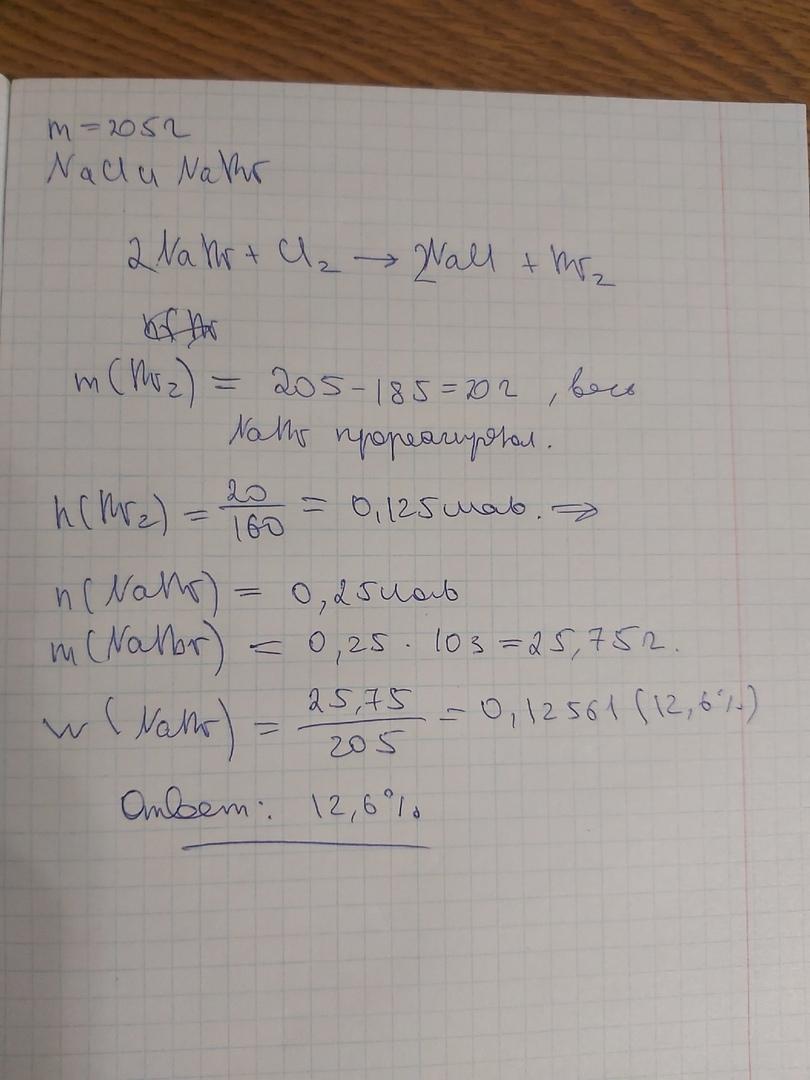 m = 205 г
NaCl и NaBr
2NaBr + Cl₂ → 2NaCl + Br₂
m(Br₂) = 205 - 185 = 20 г , весь
NaBr прореагировал.
n(Br₂) = 20/160 = 0,125 моль. ⇒
n(NaBr) = 0,25 моль
m(NaBr) = 0,25 · 103 = 25,75 г.
w(NaBr) = 25,75/205 = 0,12561 (12,6%)
Ответ: 12,6%